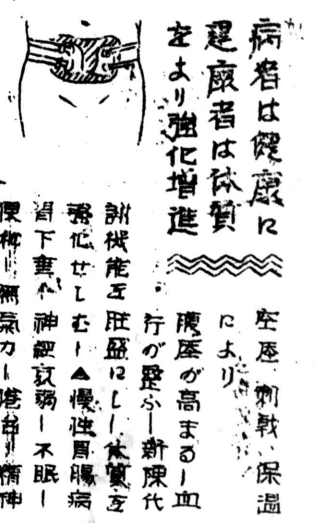 病者は健康に
健康者は体質
をより強化増進
空座、刺戟、保温
により
腹圧が高まる―血
行が整ふ―新陳代
謝機能を旺盛にし―体質を
強化せしむ―▲慢性胃腸病
胃下垂―神経衰弱―不眠―
無気力―倦怠―精神